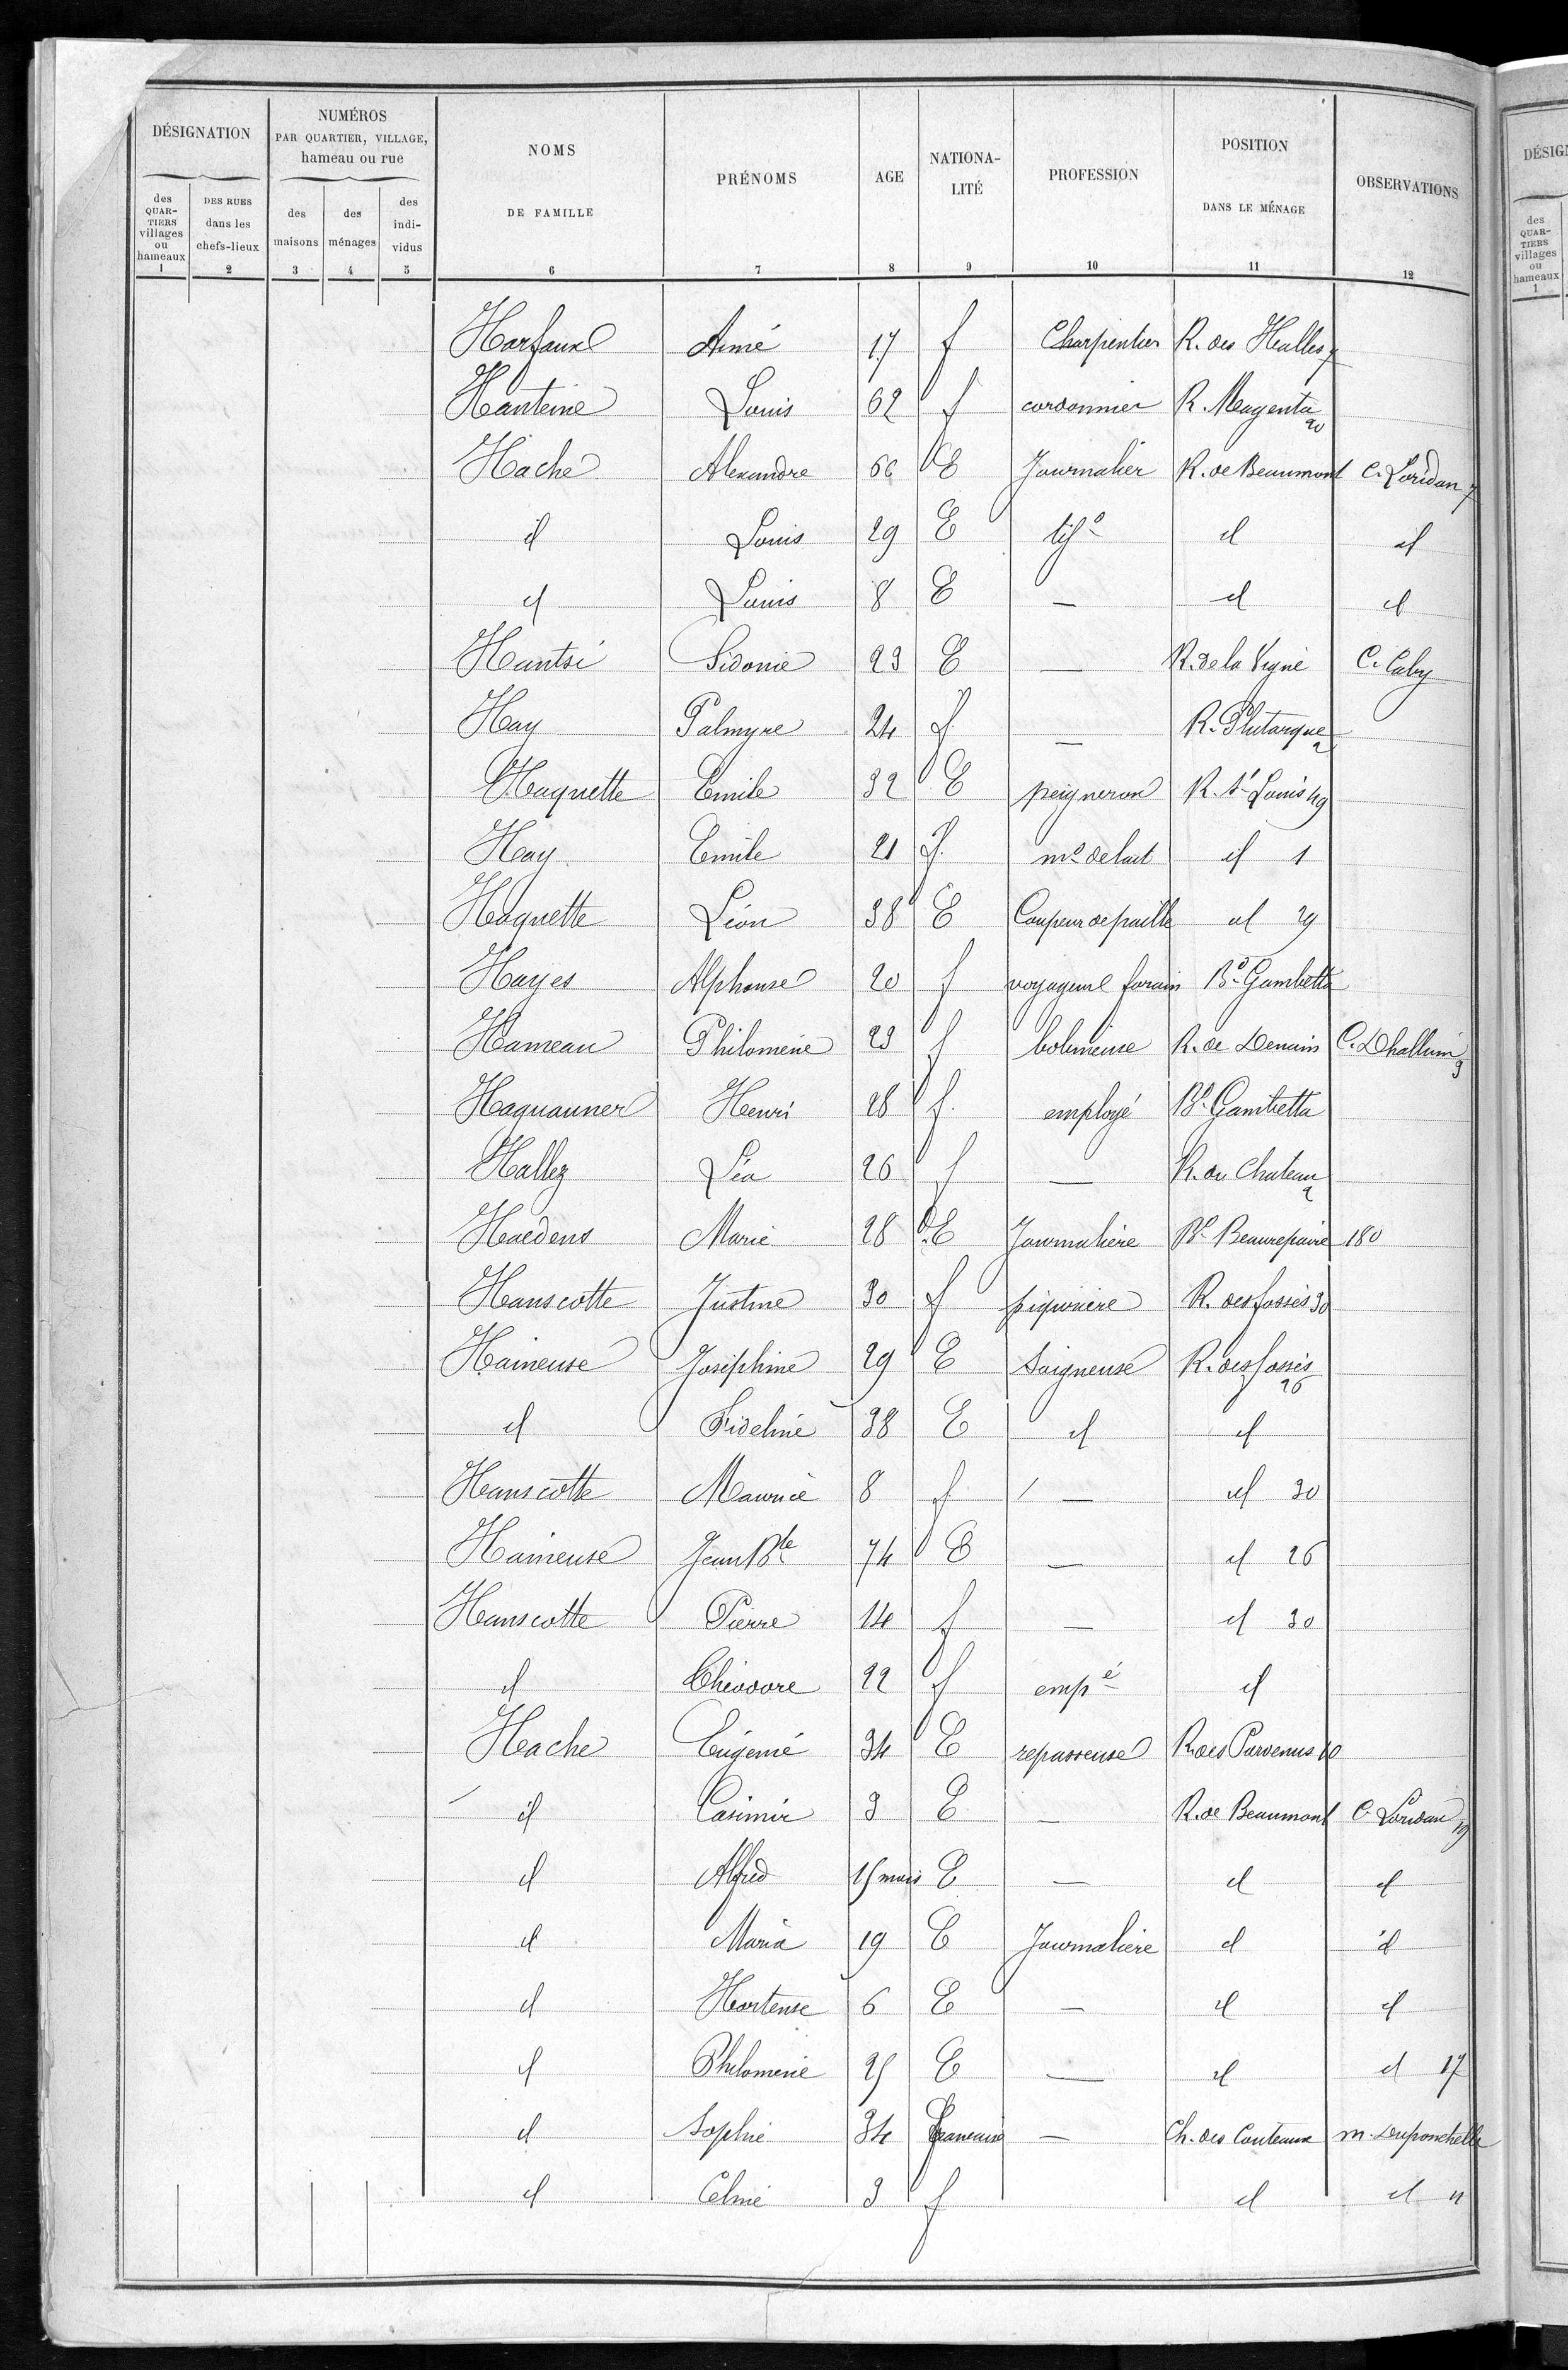 DÉSIGNATION NUMÉROS PAR QUARTIER, VILLAGE, hameau ou rue NOMS DE FAMILLE PRÉNOMS AGE NATIONALITÉ PROFESSION POSITION DANS LE MÉNAGE OBSERVATIONS
des QUARTIERS villages ou hameaux DES RUES dans les chefs-lieux des maisons des ménages des individus
1 2 3 4 5 6 7 8 9 10 11 12
Harfaux Aimé 17 f Charpentier R. des Halles 7
Hanteine Louis 62 f cordonnier R. Magenta 20
Hache Alexandre 66 E Journalier R. de Beaumont C. Loridan 7
id Louis 29 E tisd id id
id Louis 8 E — id id
Hantsi Sidonie 23 E — R. de la Vigne C. Caby
Hay Palmyre 24 f — R. Plutarque 2
Haquette Emile 32 E peigneron R. St Louis 49
Hay Emile 21 f. md de lait id 1
Haquette Léon 38 E Coupeur de paille id 29
Hayes Alphonse 20 f voyageur forain Bd Gambetta
Hameau Philomène 23 f bobineuse R. de Denain C. Dhallum 9
Haquanner Henri 28 f. employé Bd Gambetta
Hallez Léa 26 f — R. du Chateau 2
Haedens Marie 28 E Journalière Bd Beaurepaire 180
Hanscotte Justine 30 f piqurière R. des fossés 30
Haineuse Joséphine 29 E Soigneuse R. des fossés 26
id Fideline 38 E id id
Hanscotte Maurice 8 f — id 30
Haineuse Jean Bte 74 E — id 26
Hanscotte Pierre 14 f — id 30
id Théodore 22 f empé id
Hache Eugénie 34 E repasseuse R. des Parvenus 10
id Casimir 3 E — R. de Beaumont C. Loridan 19
id Alfred 15 mois E — id id
id Maria 19 E Journalière id id
id Hortense 6 E — id id
id Philomène 25 E — id id 17
id Sophie 34 française — Ch. des Couteaux m. Duponchelle
id Celine 3 f id id "
DÉSIG
des QUARTIERS villages ou hameaux
1